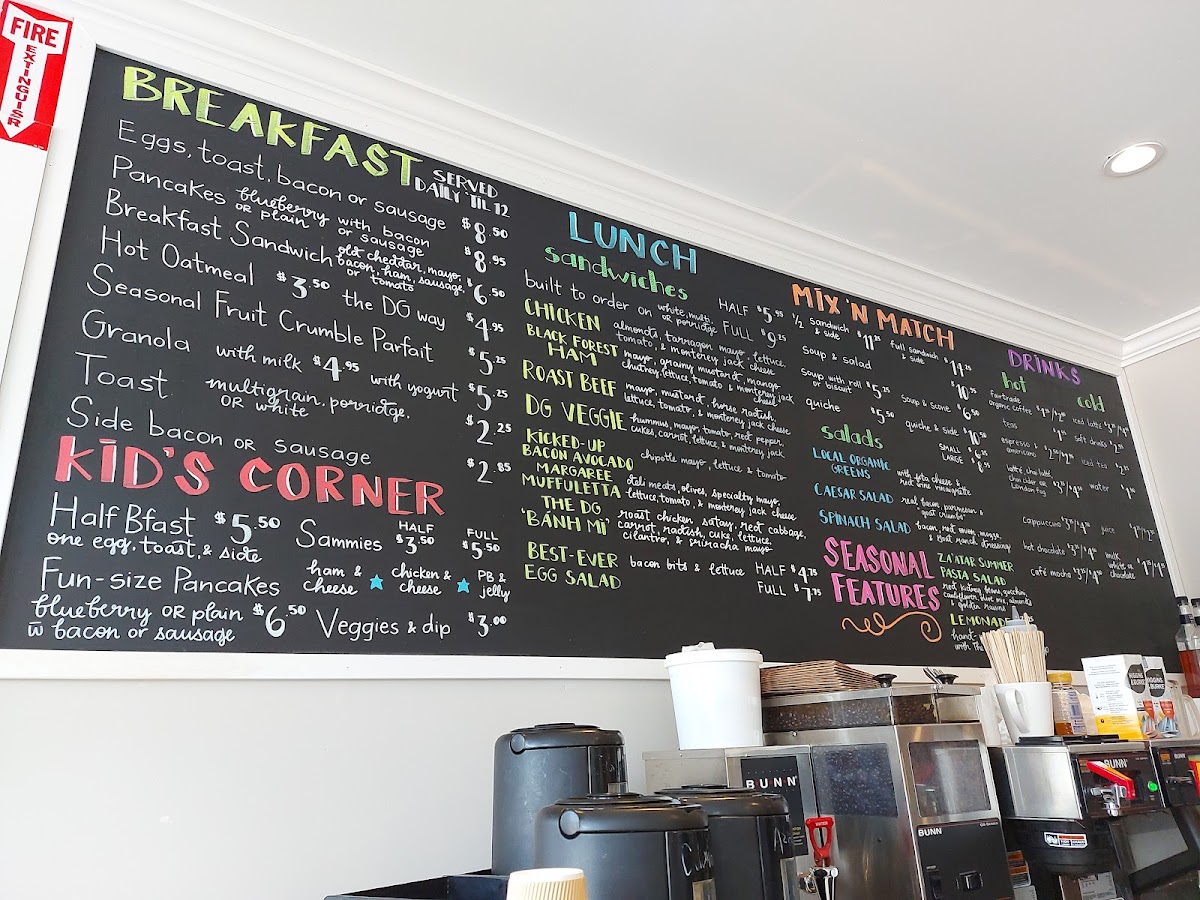 FIRE
EXTINGUISHER
BREAKFAST
SERVED
DAILY 'TIL 12
Eggs, toast, bacon or sausage $8.50
Pancakes blueberry or plain with bacon or sausage $8.95
Breakfast Sandwich old cheddar, mayo, bacon, ham, sausage, or tomato $6.50
Hot Oatmeal $3.50 the DG way $4.95
Seasonal Fruit Crumble Parfait $5.25
Granola with milk $4.95 with yogurt $5.25
Toast multigrain, porridge, or white $2.25
Side bacon or sausage $2.85
KID'S CORNER
Half Bfast $5.50
one egg, toast, & side
Fun-size Pancakes
blueberry or plain $6.50
w bacon or sausage
HALF FULL
Sammies $3.50 $5.50
ham & cheese ★ chicken & cheese ★ PB & jelly
Veggies & dip $3.00
LUNCH
sandwiches
built to order on white, multi, or porridge HALF $5.95 FULL $9.25
CHICKEN almonds, tarragon mayo, lettuce, tomato, & monterey jack cheese
BLACK FOREST HAM mayo, grainy mustard, mango chutney, lettuce, tomato & monterey jack cheese
ROAST BEEF mayo, mustard, horse radish, lettuce, tomato, & monterey jack cheese
DG VEGGIE hummus, mayo, tomato, red pepper, cukes, carrot, lettuce, & monterey jack
KICKED-UP BACON AVOCADO chipotle mayo, lettuce & tomato
MARGAREE MUFFULETTA deli meats, olives, specialty mayo, lettuce, tomato, & monterey jack cheese
THE DG 'BÁNH MÌ' roast chicken, satay, red cabbage, carrot, radish, cuke, lettuce, cilantro, & sriracha mayo
BEST-EVER EGG SALAD bacon bits & lettuce HALF $4.75
FULL $7.75
MIX 'N MATCH
1/2 sandwich & side $11.25 full sandwich & side $14.25
soup & salad $10.95
soup with roll or biscuit $5.25 soup & scone $6.50
quiche $5.50 quiche & side $10.50
salads SMALL $6.25
LARGE $8.95
LOCAL ORGANIC GREENS with feta cheese &
CAESAR SALAD real bacon, parmesan &
SPINACH SALAD bacon, red onion,
SEASONAL FEATURES
ZA'ATAR SUMMER PASTA SALAD
red kidney beans,
LEMONADE
DRINKS
hot cold
fairtrade organic coffee
iced latte
teas
soft drinks
espresso americano
iced tea
latté, chai latté, chai cider or London Fog
water
cappuccino
juice
hot chocolate
milk white or chocolate
café mocha
BUNN
BUNN
BUNN
HIGGINS & BURKE